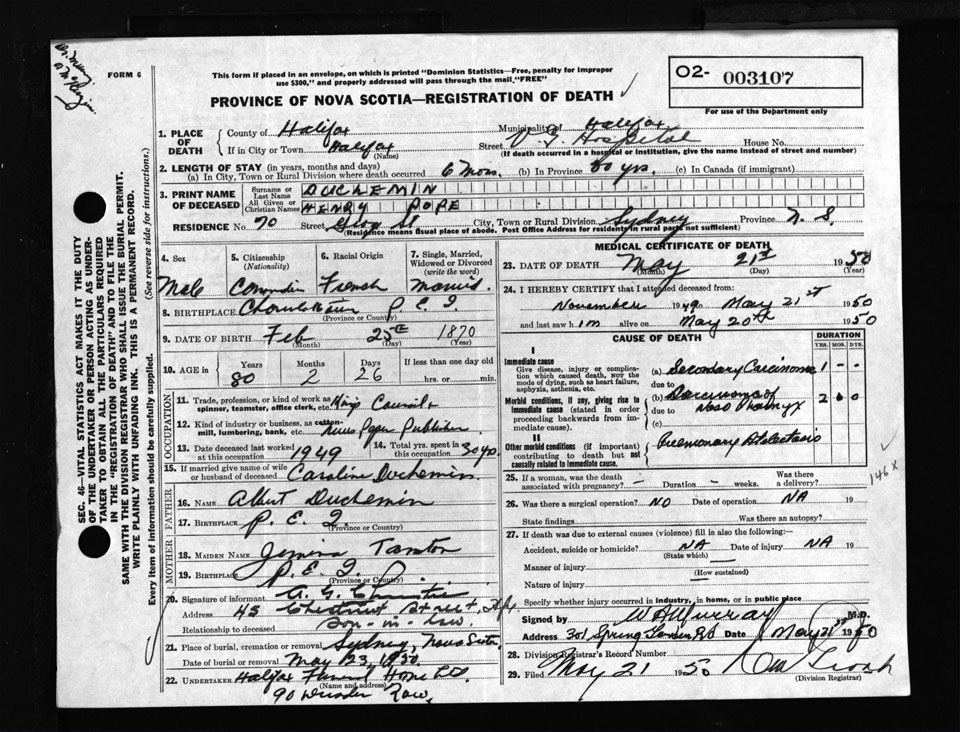 FORM 6
This form if placed in an envelope, on which is printed "Dominion Statistics—Free, penalty for improper
use $300," and properly addressed will pass through the mail, "FREE"
PROVINCE OF NOVA SCOTIA—REGISTRATION OF DEATH
02- 003107
For use of the Department only
SEC. 46—VITAL STATISTICS ACT MAKES IT THE DUTY
OF THE UNDERTAKER OR PERSON ACTING AS UNDER-
TAKER TO OBTAIN ALL THE PARTICULARS REQUIRED
IN THE "REGISTRATION OF DEATH" AND TO FILE THE
SAME WITH THE DIVISION REGISTRAR WHO SHALL ISSUE THE BURIAL PERMIT.
WRITE PLAINLY WITH UNFADING INK. THIS IS A PERMANENT RECORD.
Every item of information should be carefully supplied. (See reverse side for instructions.)
1. PLACE OF DEATH County of Halifax Municipality of Halifax
If in City or Town Halifax (Name) Street V. G. Hospital House No.
(If death occurred in a hospital or institution, give the name instead of street and number)
2. LENGTH OF STAY (in years, months and days)
(a) In City, Town or Rural Division where death occurred 6 Mos. (b) In Province 50 yrs. (c) In Canada (if immigrant)
3. PRINT NAME OF DECEASED Surname or Last Name DUCHEMIN
All Given or Christian Names HENRY POPE
RESIDENCE No. 70 Street St City, Town or Rural Division Sydney Province N. S.
(Residence means usual place of abode. Post Office Address for residents in rural parts not sufficient)
4. Sex 5. Citizenship (Nationality) 6. Racial Origin 7. Single, Married, Widowed or Divorced (write the word)
Male Canadian French Married
8. BIRTHPLACE Charlottetown P. E. I.
(Province or Country)
9. DATE OF BIRTH Feb 25th 1870
(Month) (Day) (Year)
10. AGE in Years Months Days If less than one day old
80 2 26 hrs. or min.
OCCUPATION
11. Trade, profession, or kind of work as spinner, teamster, office clerk, etc. Kings Council
12. Kind of industry or business, as cotton-mill, lumbering, bank, etc. News Paper Publisher
13. Date deceased last worked at this occupation 1949 14. Total yrs. spent in this occupation 30 40
15. If married give name of wife or husband of deceased Caroline Duchemin
FATHER
16. Name Albert Duchemin
17. Birthplace P. E. I.
(Province or Country)
MOTHER
18. MAIDEN NAME Jemima Tanton
19. BIRTHPLACE P. E. I.
(Province or Country)
20. Signature of informant A. G. Christie
Address 45 Chestnut Street, Hfx
Relationship to deceased Son-in-law
21. Place of burial, cremation or removal Sydney, Nova Scotia
Date of burial or removal May 23, 1950
22. UNDERTAKER Halifax Funeral Home Ltd
(Name and address)
90 Windsor Row.
MEDICAL CERTIFICATE OF DEATH
23. DATE OF DEATH May 21st 1950
(Month) (Day) (Year)
24. I HEREBY CERTIFY that I attended deceased from:
November 1949 to May 21st 1950
and last saw him alive on May 20th 1950
CAUSE OF DEATH DURATION
YRS. MOS. DYS.
I
Immediate cause
Give disease, injury or complication which caused death, NOT the mode of dying, such as heart failure, asphyxia, asthenia, etc.
(a) Secondary Carcinoma 1 - -
due to
Morbid conditions, if any, giving rise to immediate cause (stated in order proceeding backwards from immediate cause).
(b) Carcinoma of 2 6 0
due to Naso Pharynx
(c)
II
Other morbid conditions (if important) contributing to death but not causally related to immediate cause.
Pulmonary Atelectasis
146 x
25. If a woman, was the death associated with pregnancy? — Duration — weeks. Was there a delivery?
26. Was there a surgical operation? NO Date of operation NA 19
State findings Was there an autopsy?
27. If death was due to external causes (violence) fill in also the following:
Accident, suicide or homicide? NA Date of injury NA 19
(State which)
Manner of injury
(How sustained)
Nature of injury
Specify whether injury occurred in industry, in home, or in public place
Signed by W A Murray M.D.
Address 301 Spring Garden Rd Date May 21st 1950
28. Division Registrar's Record Number
29. Filed May 21 1950
(Division Registrar)